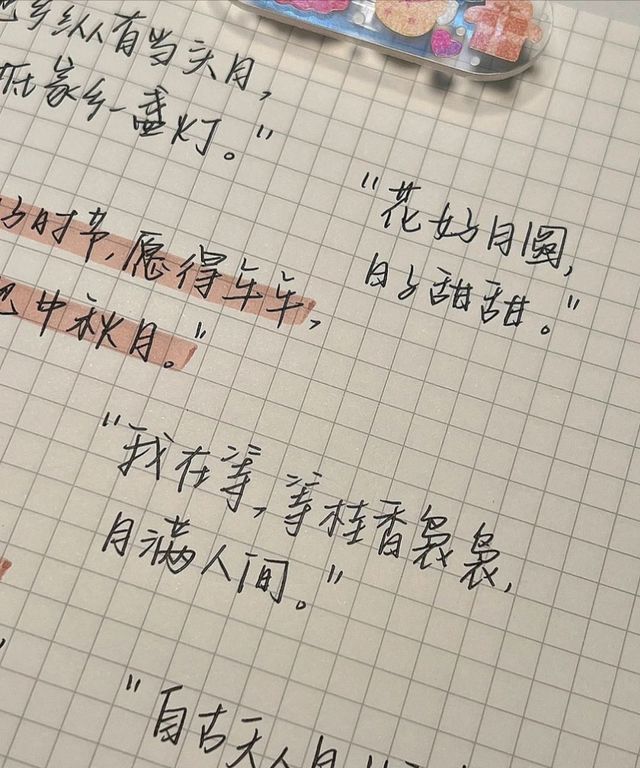 乡纵有当头月,
家乡一盏灯。"
"花好月圆,
日子甜甜。"
时节,愿得年年,
中秋月。"
"我在等,等桂香袅袅,
月满人间。"
"自古